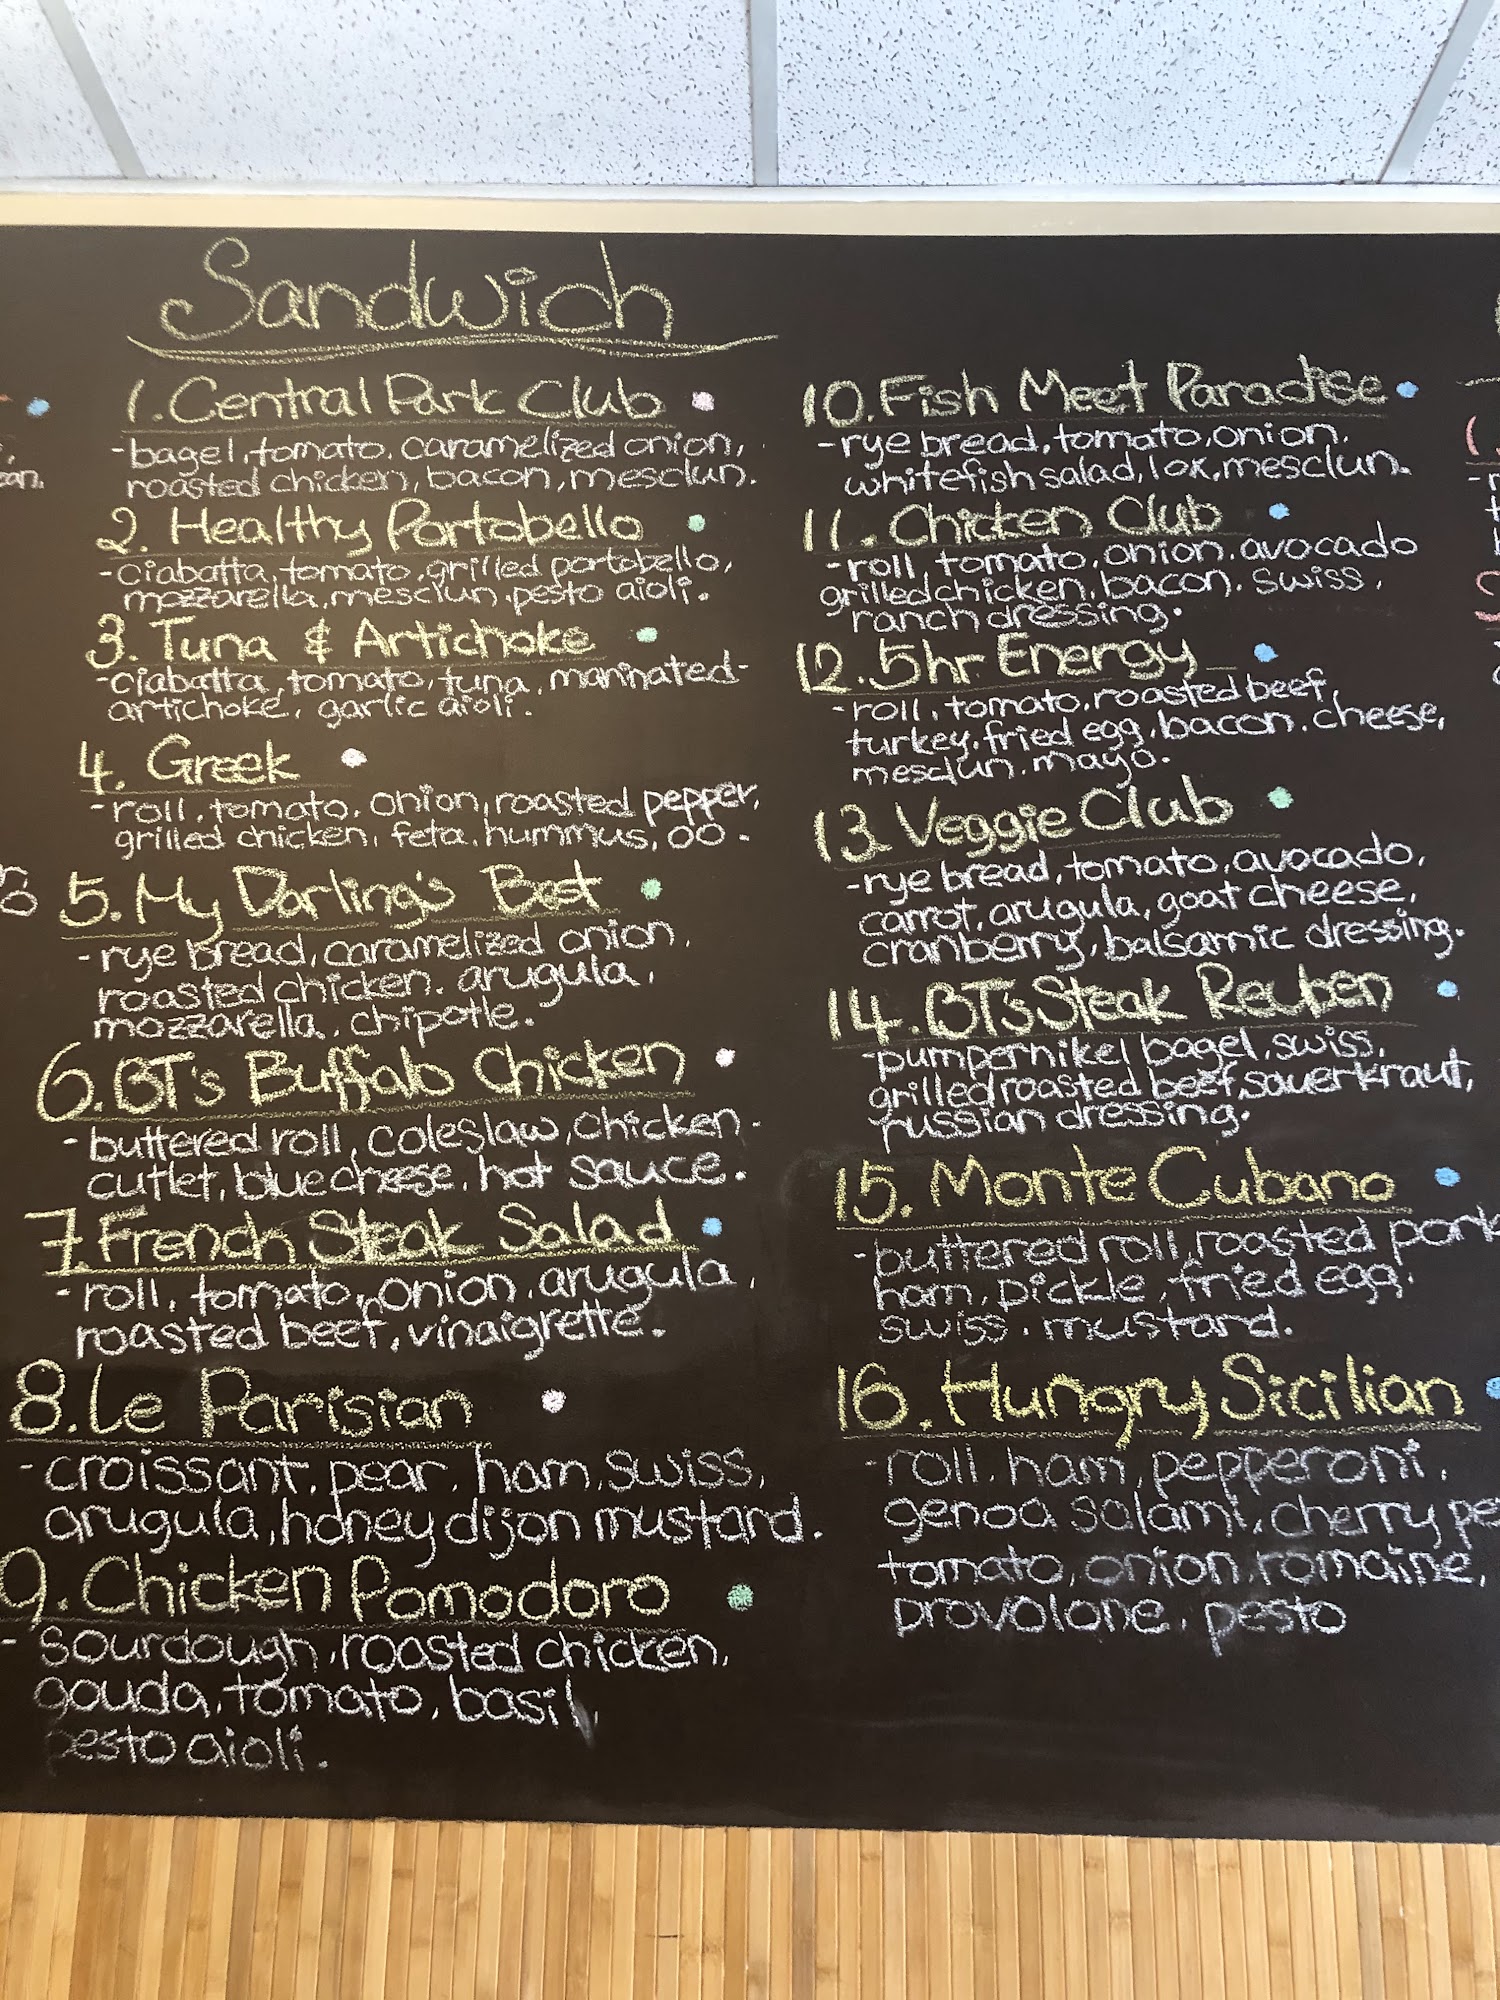 Sandwich
1. Central Park Club
- bagel, tomato, caramelized onion,
roasted chicken, bacon, mesclun.
2. Healthy Portobello
- ciabatta, tomato, grilled portobello,
mozzarella, mesclun, pesto aioli.
3. Tuna & Artichoke
- ciabatta, tomato, tuna, marinated
artichoke, garlic aioli.
4. Greek
- roll, tomato, onion, roasted pepper,
grilled chicken, feta, hummus, OO.
5. My Darling's Best
- rye bread, caramelized onion,
roasted chicken, arugula,
mozzarella, chipotle.
6. BT's Buffalo Chicken
- buttered roll, coleslaw, chicken
cutlet, blue cheese, hot sauce.
7. French Steak Salad
- roll, tomato, onion, arugula,
roasted beef, vinaigrette.
8. Le Parisian
- croissant, pear, ham, swiss,
arugula, honey dijon mustard.
9. Chicken Pomodoro
- sourdough, roasted chicken,
gouda, tomato, basil,
pesto aioli.
10. Fish Meet Paradise
- rye bread, tomato, onion,
whitefish salad, lox, mesclun.
11. Chicken Club
- roll, tomato, onion, avocado
grilled chicken, bacon, swiss,
ranch dressing.
12. 5hr Energy
- roll, tomato, roasted beef,
turkey, fried egg, bacon, cheese,
mesclun, mayo.
13. Veggie Club
- rye bread, tomato, avocado,
carrot, arugula, goat cheese,
cranberry, balsamic dressing.
14. BT's Steak Reuben
- pumpernikel bagel, swiss,
grilled roasted beef, sauerkraut,
russian dressing.
15. Monte Cubano
- buttered roll, roasted pork
ham, pickle, fried egg,
swiss, mustard.
16. Hungry Sicilian
- roll, ham, pepperoni,
genoa salami, cherry pe
tomato, onion, romaine,
provolone, pesto